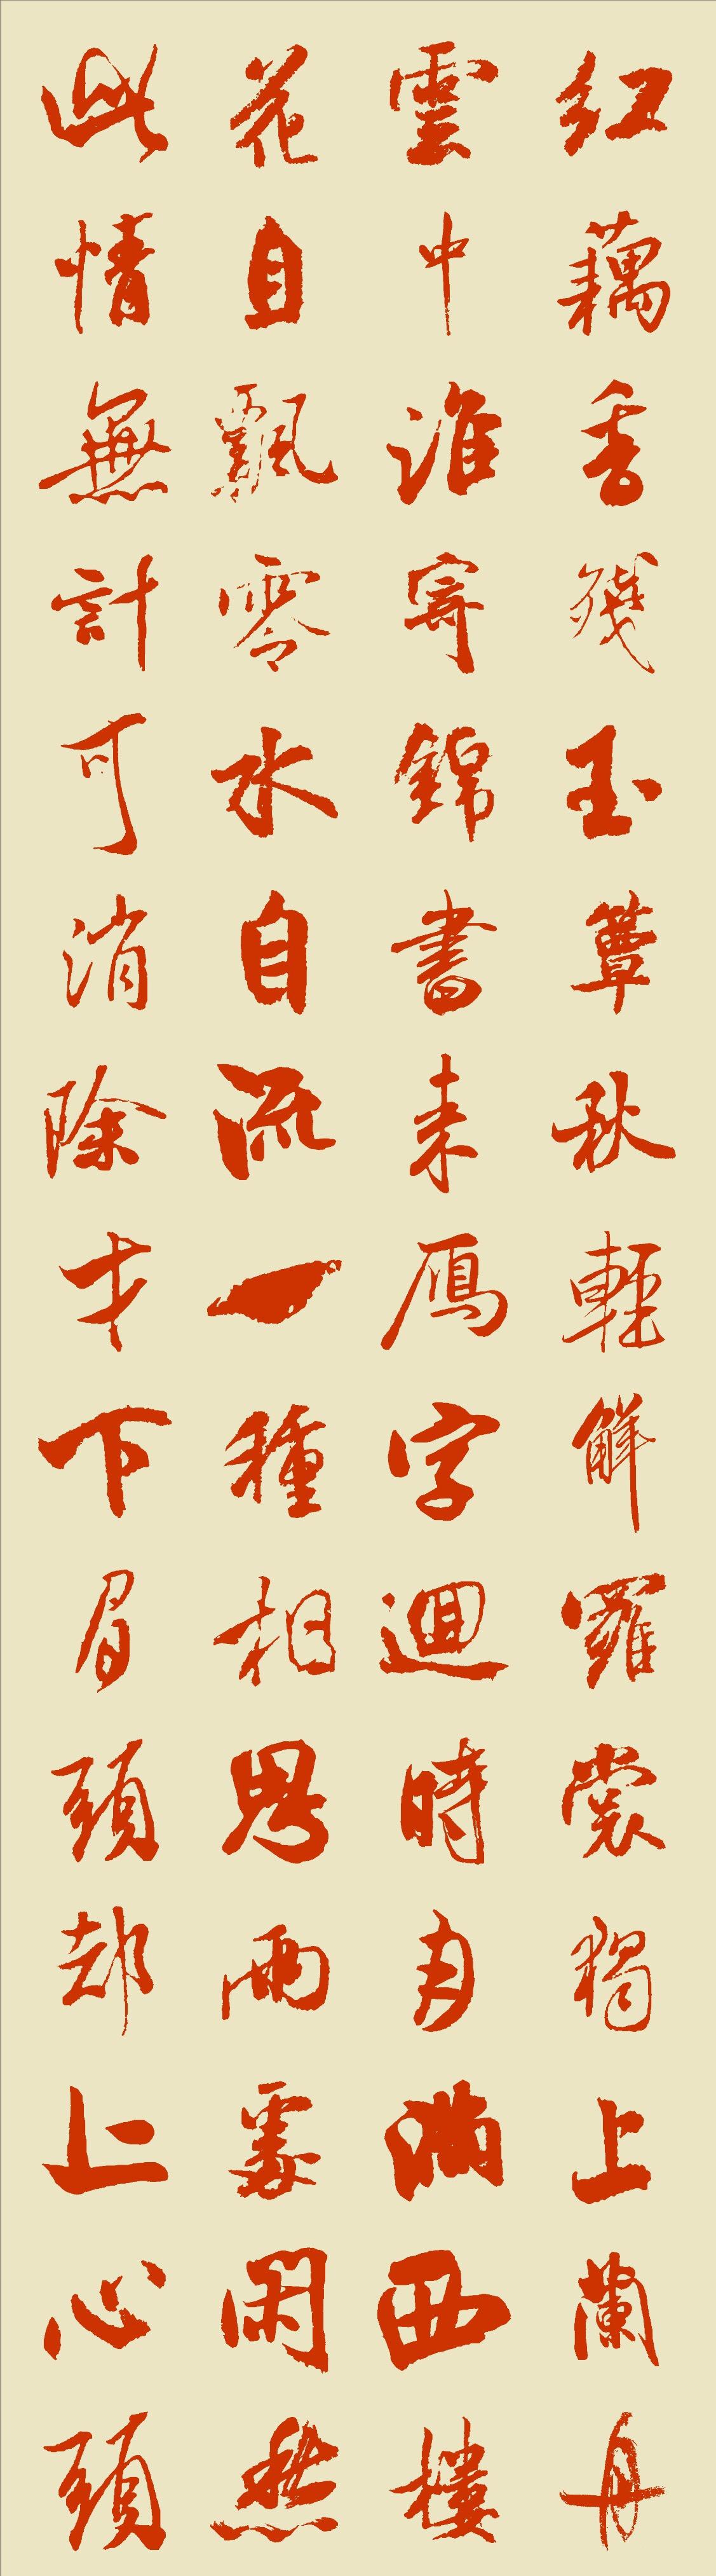 红藕香殘玉簟秋輕解羅裳獨上蘭舟
雲中誰寄錦書来鴈字迴時月滿西樓
花自飄零水自流一種相思兩處閑愁
此情無計可消除才下眉頭却上心頭